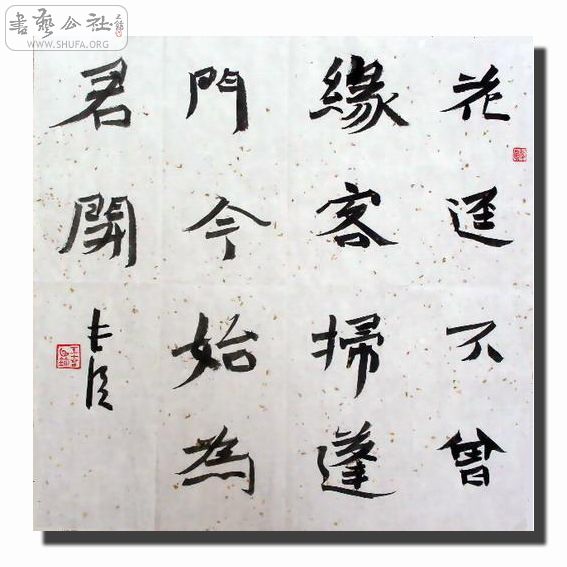 書藝公社
WWW.SHUFA.ORG
花逕不曾
緣客掃蓬
門今始為
君開